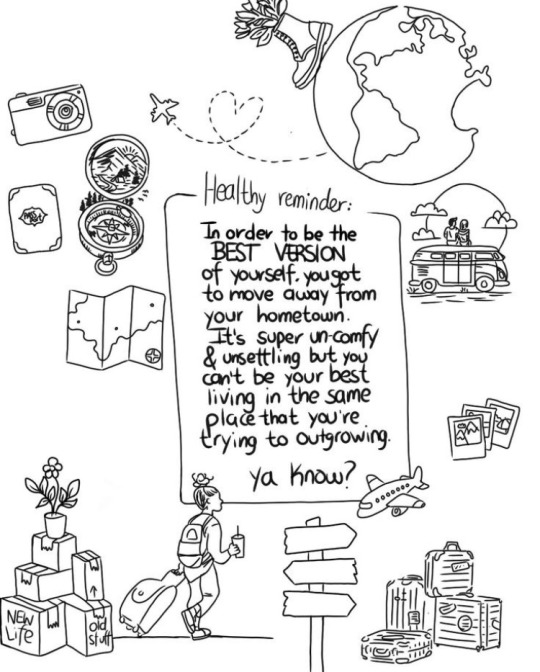 Healthy reminder:
In order to be the
BEST VERSION
of yourself, you got
to move away from
your hometown.
It's super un-comfy
& unsettling but you
can't be your best
living in the same
place that you're
trying to outgrowing.
ya know?
NEW
Life
old
stuff